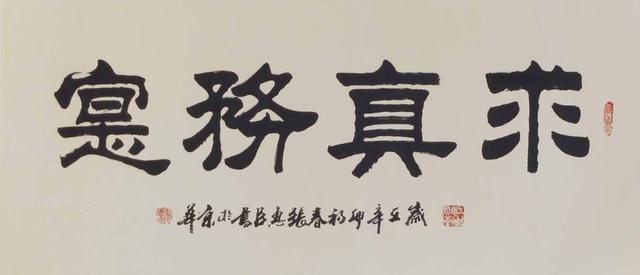 求真務寔
歲在辛卯初春張惠臣書於京華